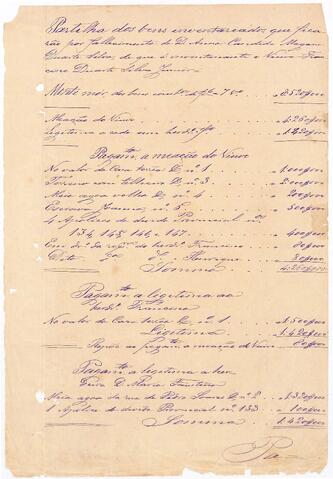 Partilha dos bens inventareados que fica
rão por fallecimento de D. Anna Candida
Duarte Silva, de que é inventariante o Viuvo Fran
cisco Duarte Silva Junior
Monte mór dos bens 8:520$000
Meação do Viuvo 4:260$000
Legitima a cada um herdº 1:420$000
Pagamto a meação do Viuvo
No valor da Casa terrea D. nº 1
Terreno com telheiro D. nº 3
Meia agoa velha D. nº 4
Escrava nº 5
4 Apolices da divida Provincial nos
134, 145, 146, 147 400$000
Em dº da repº do herdº Francisco 80$000
Dito Dª Dº Henrique
Somma 4:260$000
Pagamto a legitima ao
herdº Francisco
No valor da Casa terrea D. nº 1 1:500$000
Legitima 1:420$000
Repõe ao pagamto a meação do Viuvo 80$000
Pagamto a legitima a her
deira D. Maria
Meia agoa da rua de Pedro D. nº 2 1:320$000
1 Apolice da divida Provincial nº 133 100$000
Somma 1:420$000
Pa